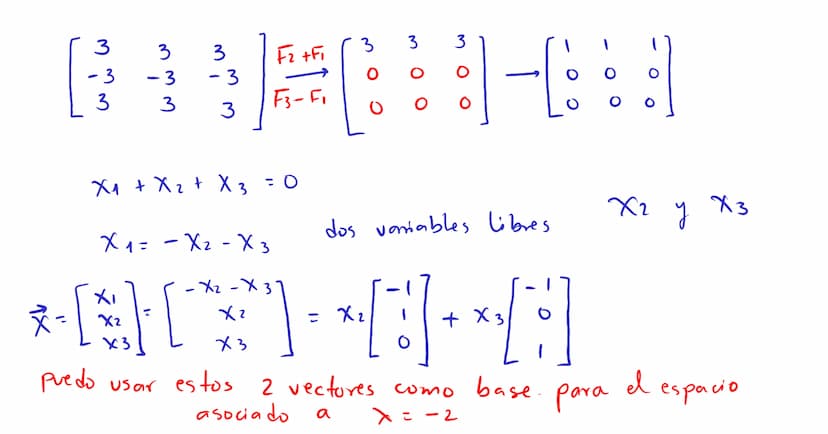 [3 3 3; -3 -3 -3; 3 3 3] F2 + F1 / F3 - F1 → [3 3 3; 0 0 0; 0 0 0] → [1 1 1; 0 0 0; 0 0 0]
x1 + x2 + x3 = 0
x1 = -x2 - x3 dos variables libres x2 y x3
x⃗ = [x1; x2; x3] = [-x2 - x3; x2; x3] = x2 [-1; 1; 0] + x3 [-1; 0; 1]
puedo usar estos 2 vectores como base para el espacio
asociado a λ = -2